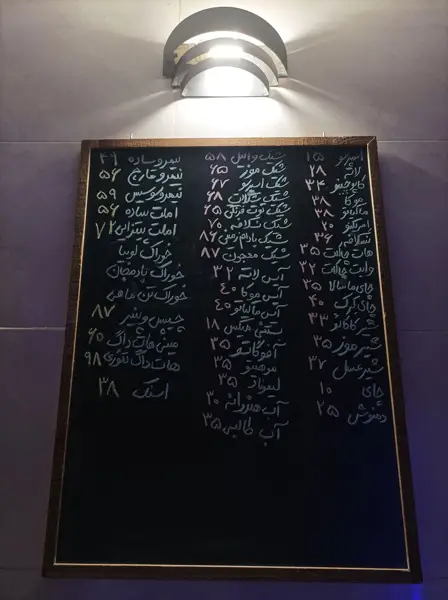 اسپرسو ۱۵
لاته ۲۸
کاپوچینو ۳۴
موکا ۳۸
ماکیاتو ۳۸
امریکنو ۲۰
نسکافه ۳۶
هات چاکلت ۳۵
وایت چاکلت ۳۲
چای ماسالا ۳۵
چای کرک ۴۰
شیر کاکائو ۳۳
شیر موز ۳۵
شیر عسل ۳۷
چای ۱۰
دمنوش ۲۵
شیک وانیل ۵۸
شیک موز ۶۵
شیک اسپرسو ۶۷
شیک شکلات ۶۸
شیک توت فرنگی ۶۵
شیک نسکافه ۷۰
شیک بادام زمینی ۸۶
شیک معجون ۸۷
آیس لاته ۳۲
آیس موکا ۴۰
آیس ماکیاتو ۴۰
بستنی میکس ۱۸
آفوگاتو ۳۵
موهیتو ۳۵
لیموناد ۳۵
آب هندوانه ۳۰
آب طالبی ۳۵
نیمرو ساده ۴۹
نیمرو قارچ ۵۶
نیمرو سوسیس ۵۹
املت ساده ۵۶
املت ایتالیایی ۷۲
خوراک لوبیا
خوراک بادمجان
خوراک تن ماهی
چیپس و پنیر ۸۷
مینی هات داگ ۶۵
هات داگ تنوری ۹۸
اسنک ۳۸